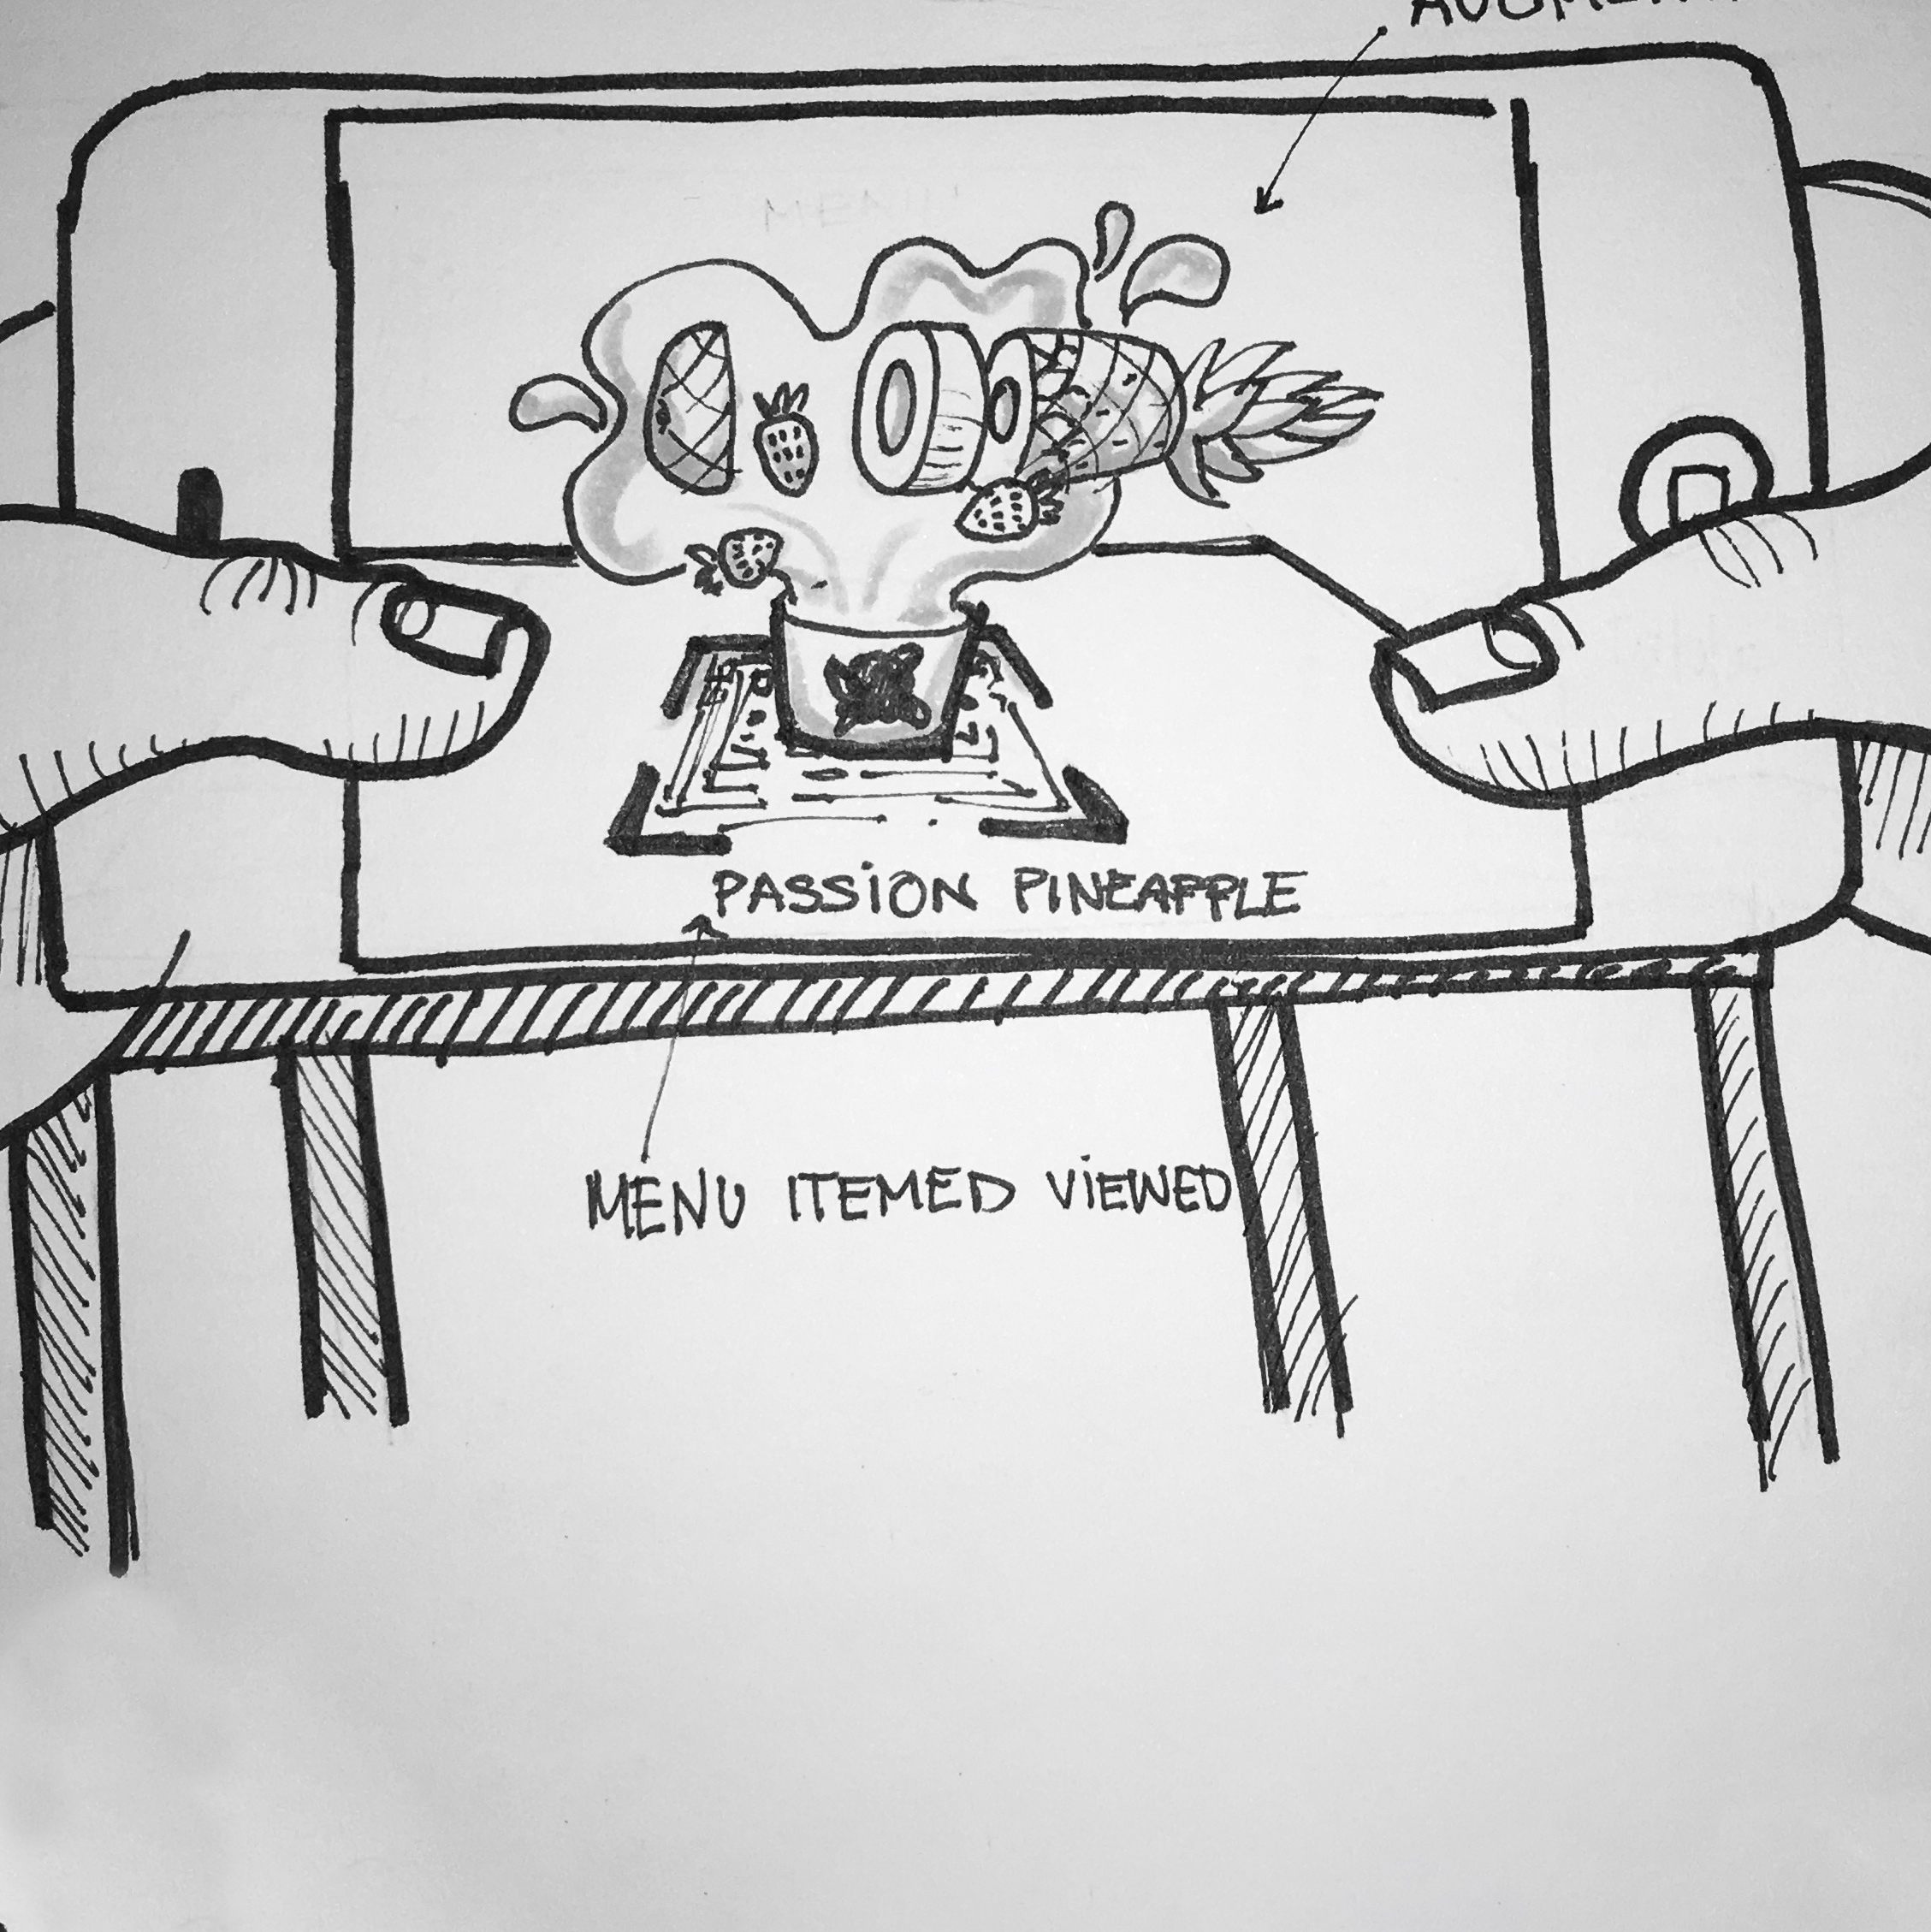 MENU
PASSION PINEAPPLE
MENU ITEMED VIEWED